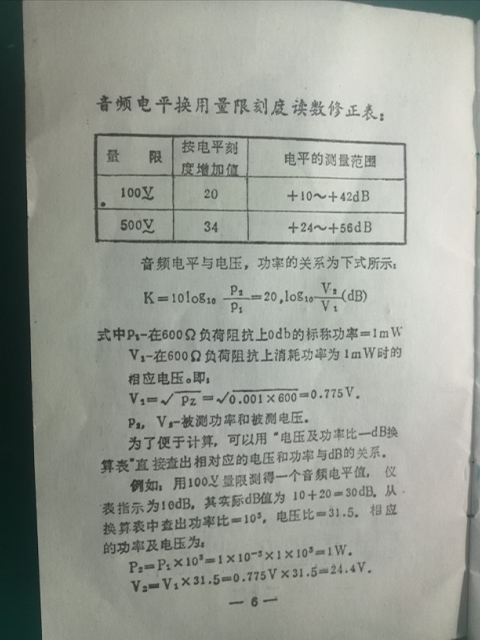 音频电平换用量限刻度读数修正表:
量 限 按电平刻度增加值 电平的测量范围
100V 20 +10~+42dB
500V 34 +24~+56dB
音频电平与电压,功率的关系为下式所示:
K=10log₁₀ P₂/P₁ =20,log₁₀ V₂/V₁ (dB)
式中P₁-在600Ω负荷阻抗上0db的标称功率=1mW
V₁-在600Ω负荷阻抗上消耗功率为1mW时的
相应电压。即:
V₁=√PZ=√0.001×600=0.775V.
P₂, V₂-被测功率和被测电压.
为了便于计算,可以用"电压及功率比—dB换
算表"直接查出相对应的电压和功率与dB的关系.
例如: 用100V量限测得一个音频电平值, 仪
表指示为10dB, 其实际dB值为 10+20=30dB. 从
换算表中查出功率比=10³, 电压比=31.5. 相应
的功率及电压为:
P₂=P₁×10³=1×10⁻³×1×10³=1W.
V₂=V₁×31.5=0.775V×31.5=24.4V.
— 6 —